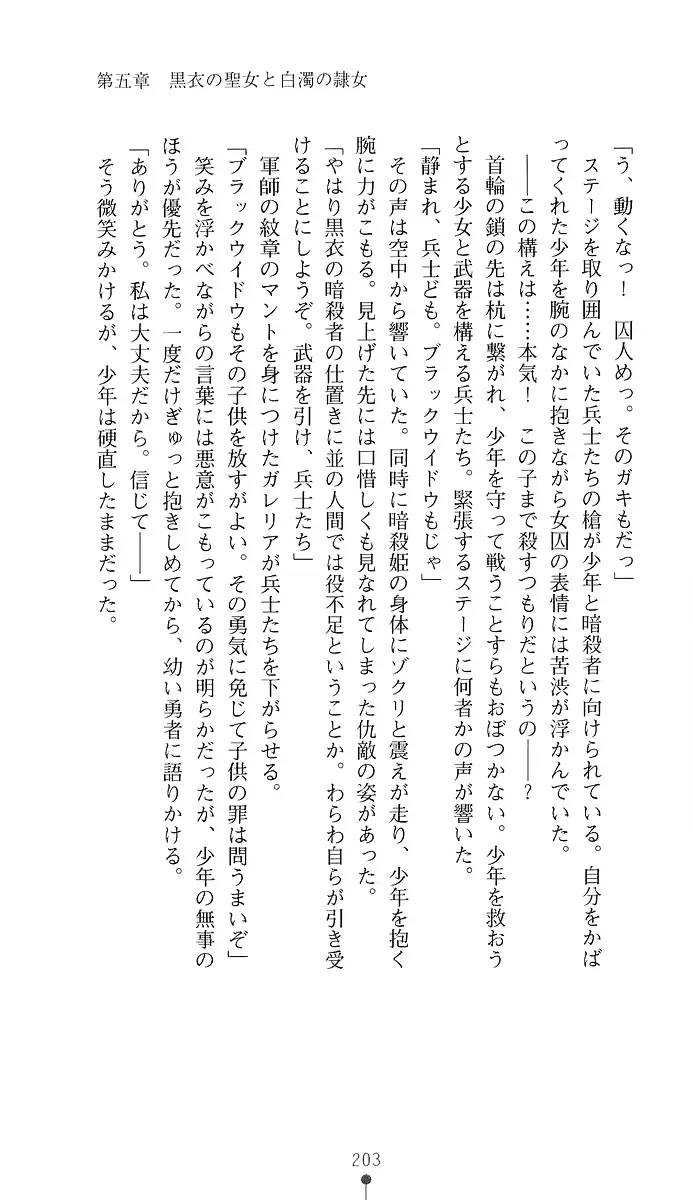 第五章　黒衣の聖女と白濁の隷女
「う、動くなっ！　囚人めっ。そのガキもだっ」
　ステージを取り囲んでいた兵士たちの槍が少年と暗殺者に向けられている。自分をかば
ってくれた少年を腕のなかに抱きながら女囚の表情には苦渋が浮かんでいた。
　――この構えは……本気！　この子まで殺すつもりだというの――？
　首輪の鎖の先は杭に繋がれ、少年を守って戦うことすらもおぼつかない。少年を救おう
とする少女と武器を構える兵士たち。緊張するステージに何者かの声が響いた。
「静まれ、兵士ども。ブラックウイドウもじゃ」
　その声は空中から響いていた。同時に暗殺姫の身体にゾクリと震えが走り、少年を抱く
腕に力がこもる。見上げた先には口惜しくも見なれてしまった仇敵の姿があった。
「やはり黒衣の暗殺者の仕置きに並の人間では役不足ということか。わらわ自らが引き受
けることにしようぞ。武器を引け、兵士たち」
　軍師の紋章のマントを身につけたガレリアが兵士たちを下がらせる。
「ブラックウイドウもその子供を放すがよい。その勇気に免じて子供の罪は問うまいぞ」
　笑みを浮かべながらの言葉には悪意がこもっているのが明らかだったが、少年の無事の
ほうが優先だった。一度だけぎゅっと抱きしめてから、幼い勇者に語りかける。
「ありがとう。私は大丈夫だから。信じて――」
　そう微笑みかけるが、少年は硬直したままだった。
203